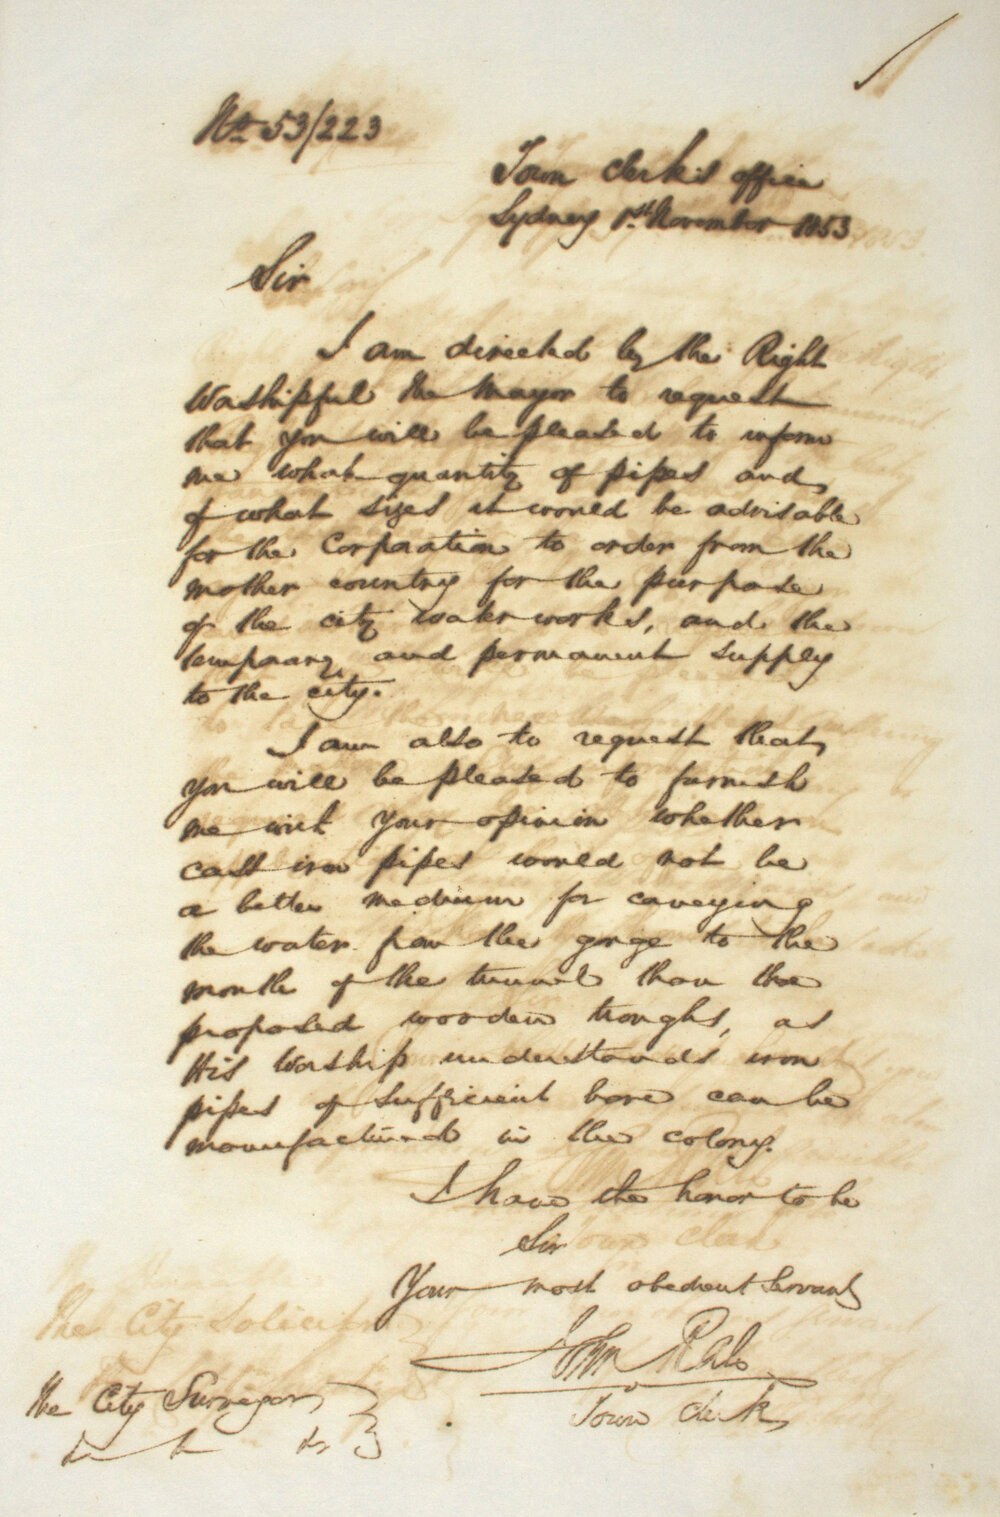 No. 53/223
Town Clerk's Office
Sydney 1st November 1853
Sir
I am directed by the Right
Worshipful the Mayor to request
that you will be pleased to inform
me what quantity of pipes and
of what sizes it would be advisable
for the Corporation to order from the
mother country for the purpose
of the city water works, and the
temporary and permanent supply
to the city.
I am also to request that
you will be pleased to furnish
me with your opinion whether
cast iron pipes would not be
a better medium for conveying
the water from the gorge to the
mouth of the tunnel than the
proposed wooden troughs, as
His Worship understands iron
pipes of sufficient bore can be
manufactured in the colony.
I have the honor to be
Sir
Your most obedient Servant
John Rae
Town Clerk
The City Surveyor